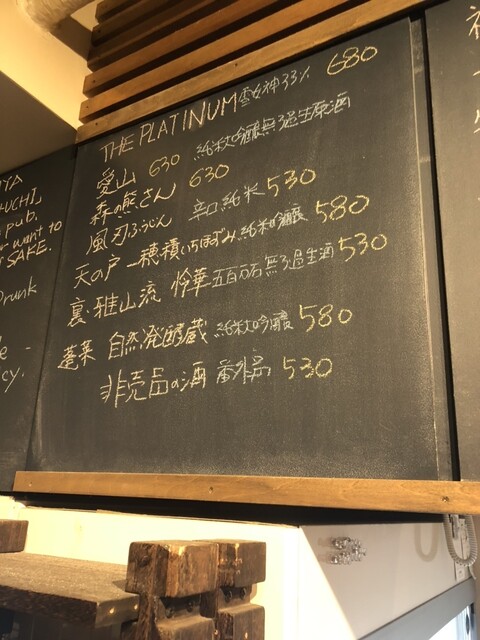 THE PLATINUM 雪女神33% 680
愛山 630 純米大吟醸無ろ過生原酒
森の熊さん 630
風刃ふうじん 辛口純米 530
天の戸 一穂積いちほずみ 純米吟醸 580
裏・雅山流 怜華 五百万石 無ろ過生酒 530
蓬莱 自然発酵蔵 純米大吟醸 580
非売品の酒 番外品 530
pub.
want to
SAKE.
Drunk